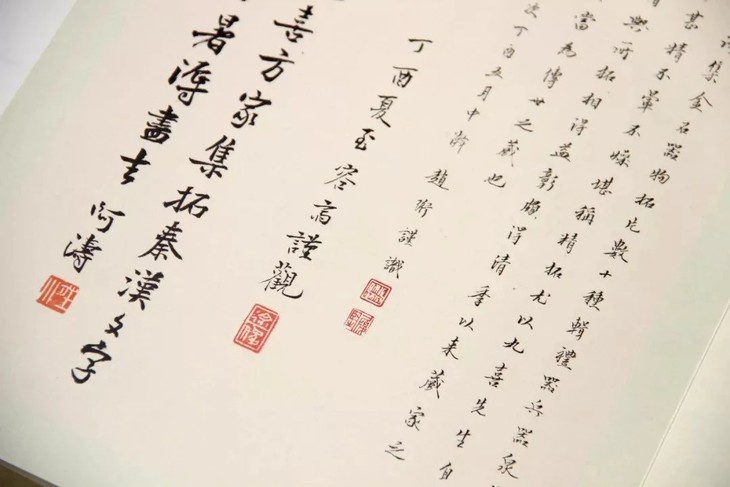 集金石器物拓片數十種輯禮器兵器泉
甚精不單不堪稱精拓尤以九喜先生自
與所拓相得益彰頗得清季以來藏家之
當為傳世之藏也
次丁酉五月中澣趙衎謹識
丁酉夏至容高謹觀
喜方家集拓秦漢文字
暑畫吉阿濤